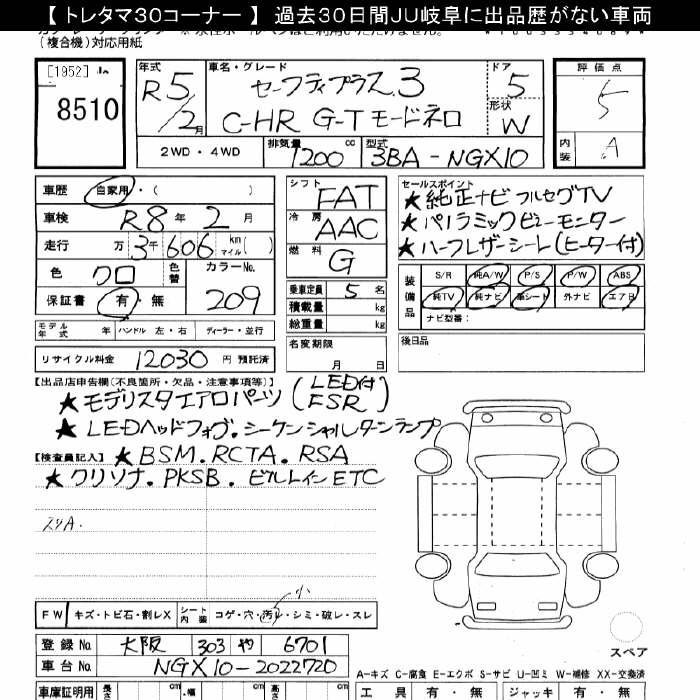 【 トレタマ30コーナー 】 過去30日間JU岐阜に出品歴がない車両
(複合機)対応用紙
[1952]
8510
年式 R5/2月
車名・グレード セーフティプラス3
C-HR G-Tモードネロ
ドア 5
形状 W
評価点 5
内装 A
2WD・4WD 排気量 1200 cc 型式 3BA-NGX10
車歴 自家用・( )
車検 R8年2月
走行 万3千606 km(マイル)( )
色 クロ 色替 カラーNo. 209
保証書 有・無
シフト FAT
冷房 AAC
燃料 G
乗車定員 5 名
積載量 kg
総重量 kg
名変期限 月 日
セールスポイント
★純正ナビ フルセグTV
★パノラミックビューモニター
★ハーフレザーシート(ヒーター付)
装備品 S/R 純A/W P/S P/W ABS
純TV 純ナビ 革シート 外ナビ エアB
ナビ型番:
後日品
モデル年式 年 ハンドル 左・右 ディーラー・並行
リサイクル料金 12030 円 預託済
【出品店申告欄(不良箇所・欠品・注意事項等)】
★モデリスタエアロパーツ(LED付 FSR)
★LEDヘッドフォグ.シーケンシャルターンランプ
【検査員記入】★BSM.RCTA.RSA
★クリソナ.PKSB.ビルトインETC
スリA.
小
FW キズ・トビ石・割レX シート内装 コゲ・穴・汚レ・シミ・破レ・スレ
登録No. 大阪 303 や 6701
車台No. NGX10-2022720
スペア
A-キズ C-腐食 E-エクボ S-サビ U-凹ミ W-補修 XX-交換済
車庫証明用 長さ cm 幅 cm 高さ cm
工具 有・無 ジャッキ 有・無